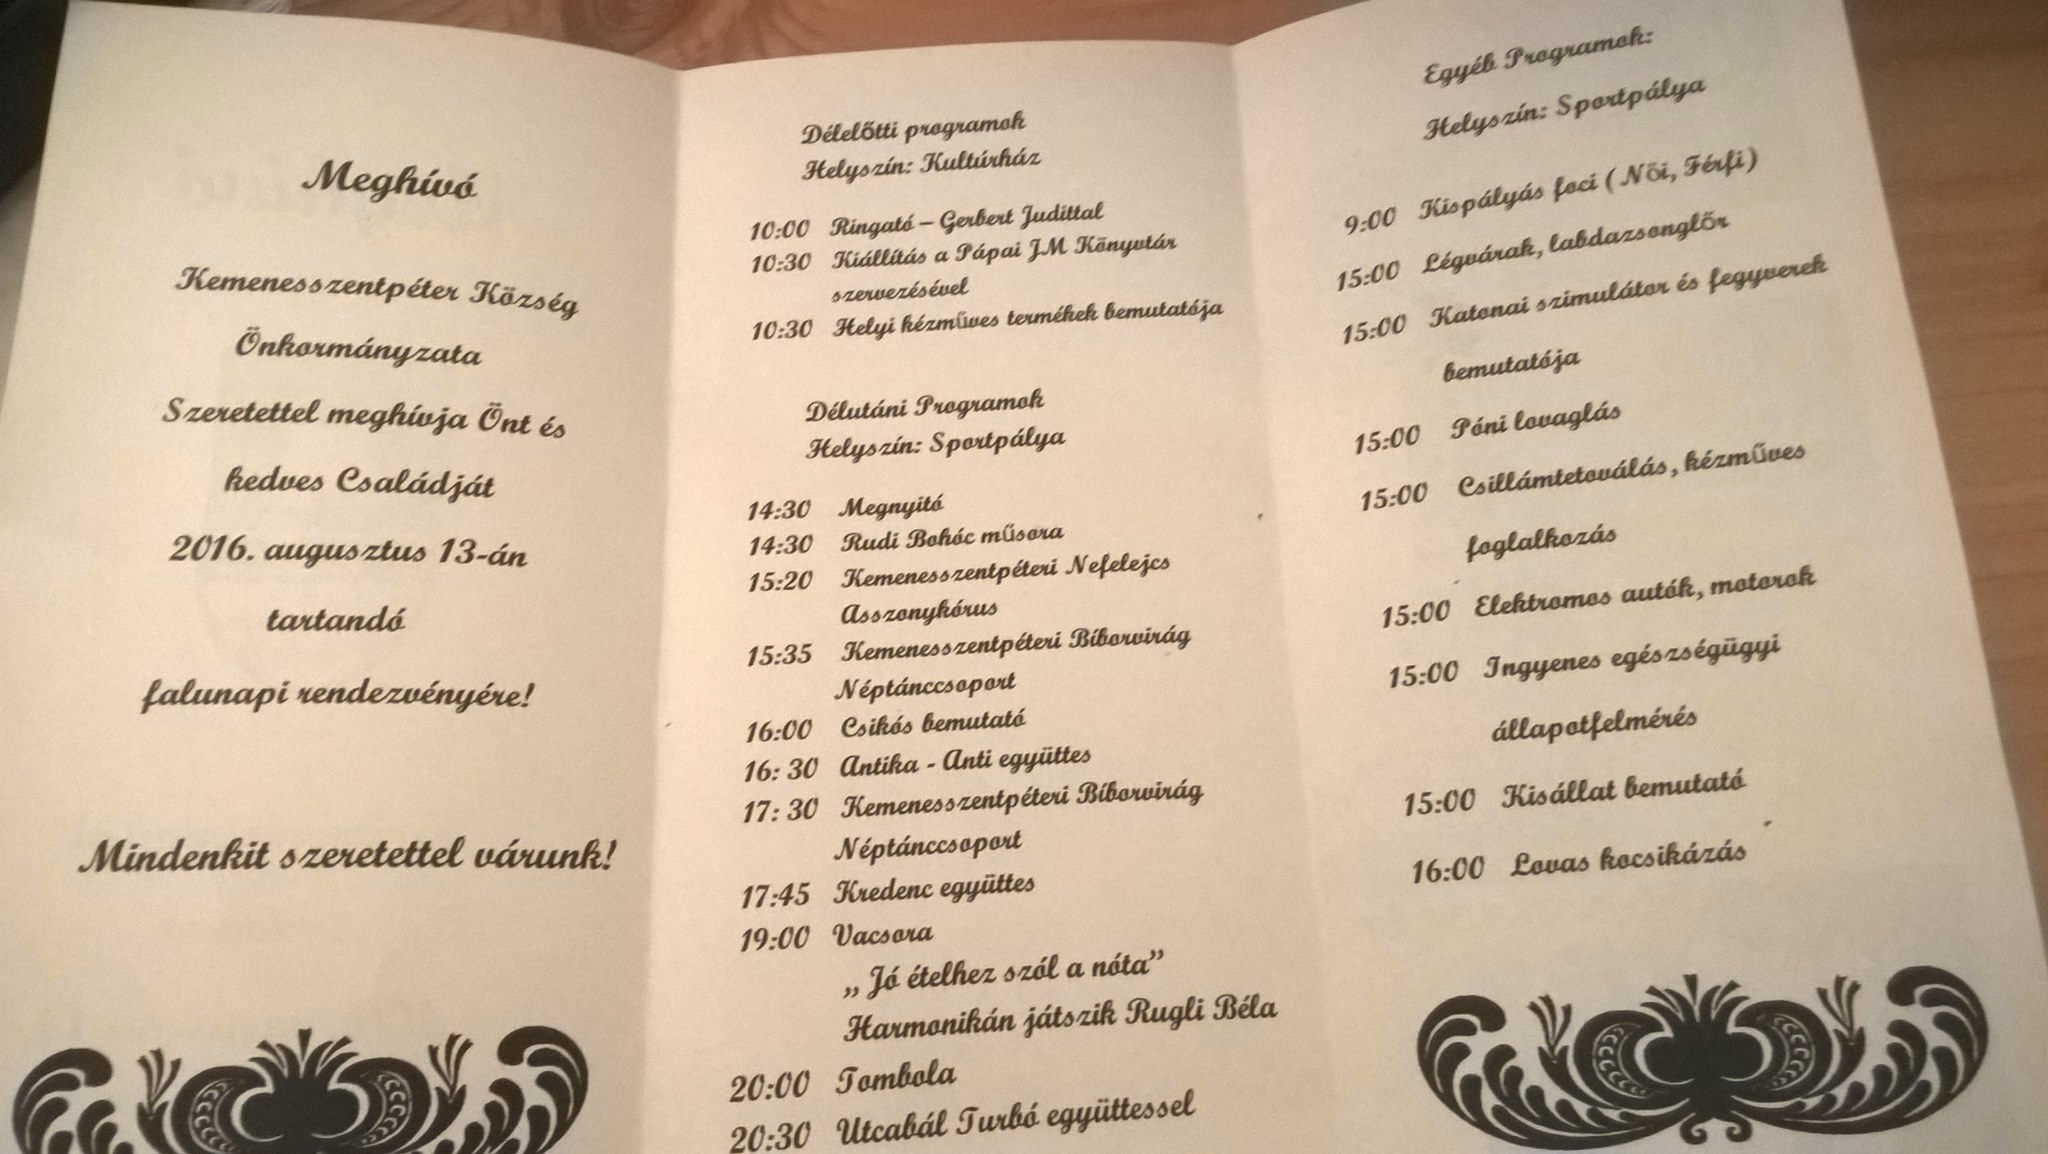 Meghívó
Kemenesszentpéter Község
Önkormányzata
Szeretettel meghívja Önt és
kedves Családját
2016. augusztus 13-án
tartandó
falunapi rendezvényére!
Mindenkit szeretettel várunk!
Délelőtti programok
Helyszín: Kultúrház
10:00 Ringató – Gerbert Judittal
10:30 Kiállítás a Pápai JM Könyvtár
szervezésével
10:30 Helyi kézműves termékek bemutatója
Délutáni Programok
Helyszín: Sportpálya
14:30 Megnyitó
14:30 Rudi Bohóc műsora
15:20 Kemenesszentpéteri Nefelejcs
Asszonykórus
15:35 Kemenesszentpéteri Bíborvirág
Néptánccsoport
16:00 Csikós bemutató
16: 30 Antika - Anti együttes
17: 30 Kemenesszentpéteri Bíborvirág
Néptánccsoport
17:45 Kredenc együttes
19:00 Vacsora
„ Jó ételhez szól a nóta”
Harmonikán játszik Rugli Béla
20:00 Tombola
20:30 Utcabál Turbó együttessel
Egyéb Programok:
Helyszín: Sportpálya
9:00 Kispályás foci ( Női, Férfi)
15:00 Légvárak, labdazsonglőr
15:00 Katonai szimulátor és fegyverek
bemutatója
15:00 Póni lovaglás
15:00 Csillámtetoválás, kézműves
foglalkozás
15:00 Elektromos autók, motorok
15:00 Ingyenes egészségügyi
állapotfelmérés
15:00 Kisállat bemutató
16:00 Lovas kocsikázás